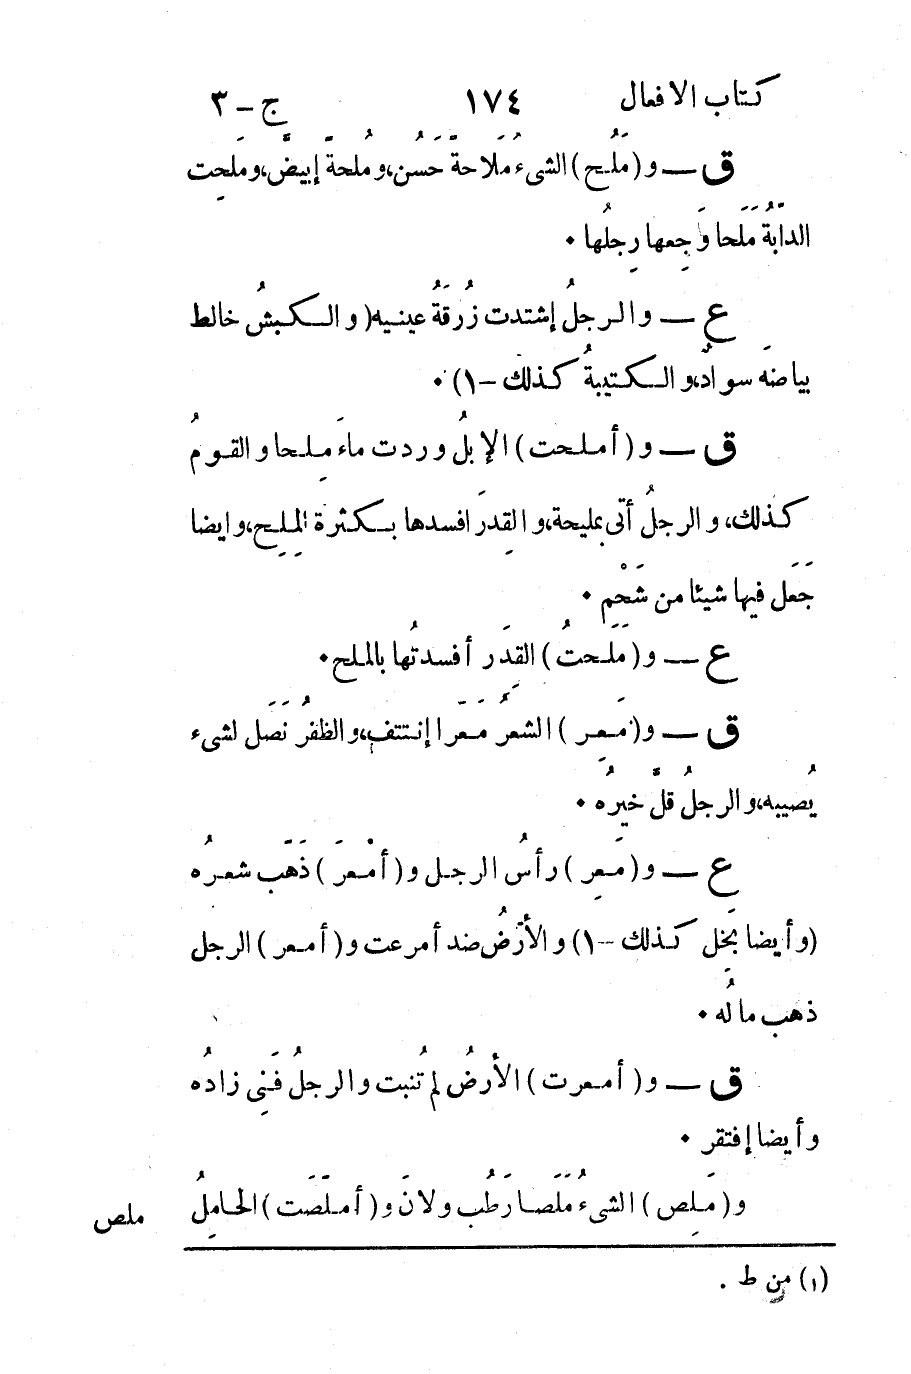 كتاب الافعال ١٧٤ ج – ٣
ق — و (مَلُح) الشىءُ مُلاَحةً حَسُن، و مُلحةً إبيضّ، و مَلِحت
الدابّةُ مَلَحا وَجِعها رِجلُها ۰
ع — و الرجلُ إشتدت زُرقَةُ عينيه (و الكبشُ خالط
بياضَه سوادٌ، و الكتيبةُ كذلك –١) ۰
ق — و (أملحت) الإبلُ وردت ماءَ مِلحا و القومُ
كذلك، و الرجلُ أتى بمليحة، و القِدرَ افسدها بكثرة المِلح، و ايضا
جَعَل فيها شيئا من شَحْمٍ ۰
ع — و (مَلَحتُ) القِدَر أفسدتُها بالملح ۰
ق — و (مَعِر) الشعرُ مَعَرا إنتتف، و الظفرُ نَصَل لشىء
يُصيبه، و الرجلُ قلّ خيرُه ۰
ع — و (مَعِر) رأسُ الرجل و (أمْعرَ) ذَهّب شعرُه
(و أيضا بَخِل كذلك –١) و الأرضُ ضد أمرعت و (أمعر) الرجل
ذهب مالُه ۰
ق — و (أمعرت) الأرضُ لم تُنبت و الرجلُ فَنِى زادُه
و أيضا إفتقر ۰
و (مَلِص) الشىءُ مُلَصا رَطُب و لانَ و (أملَصَت) الحامِلُ
ملص
(١) من ط .